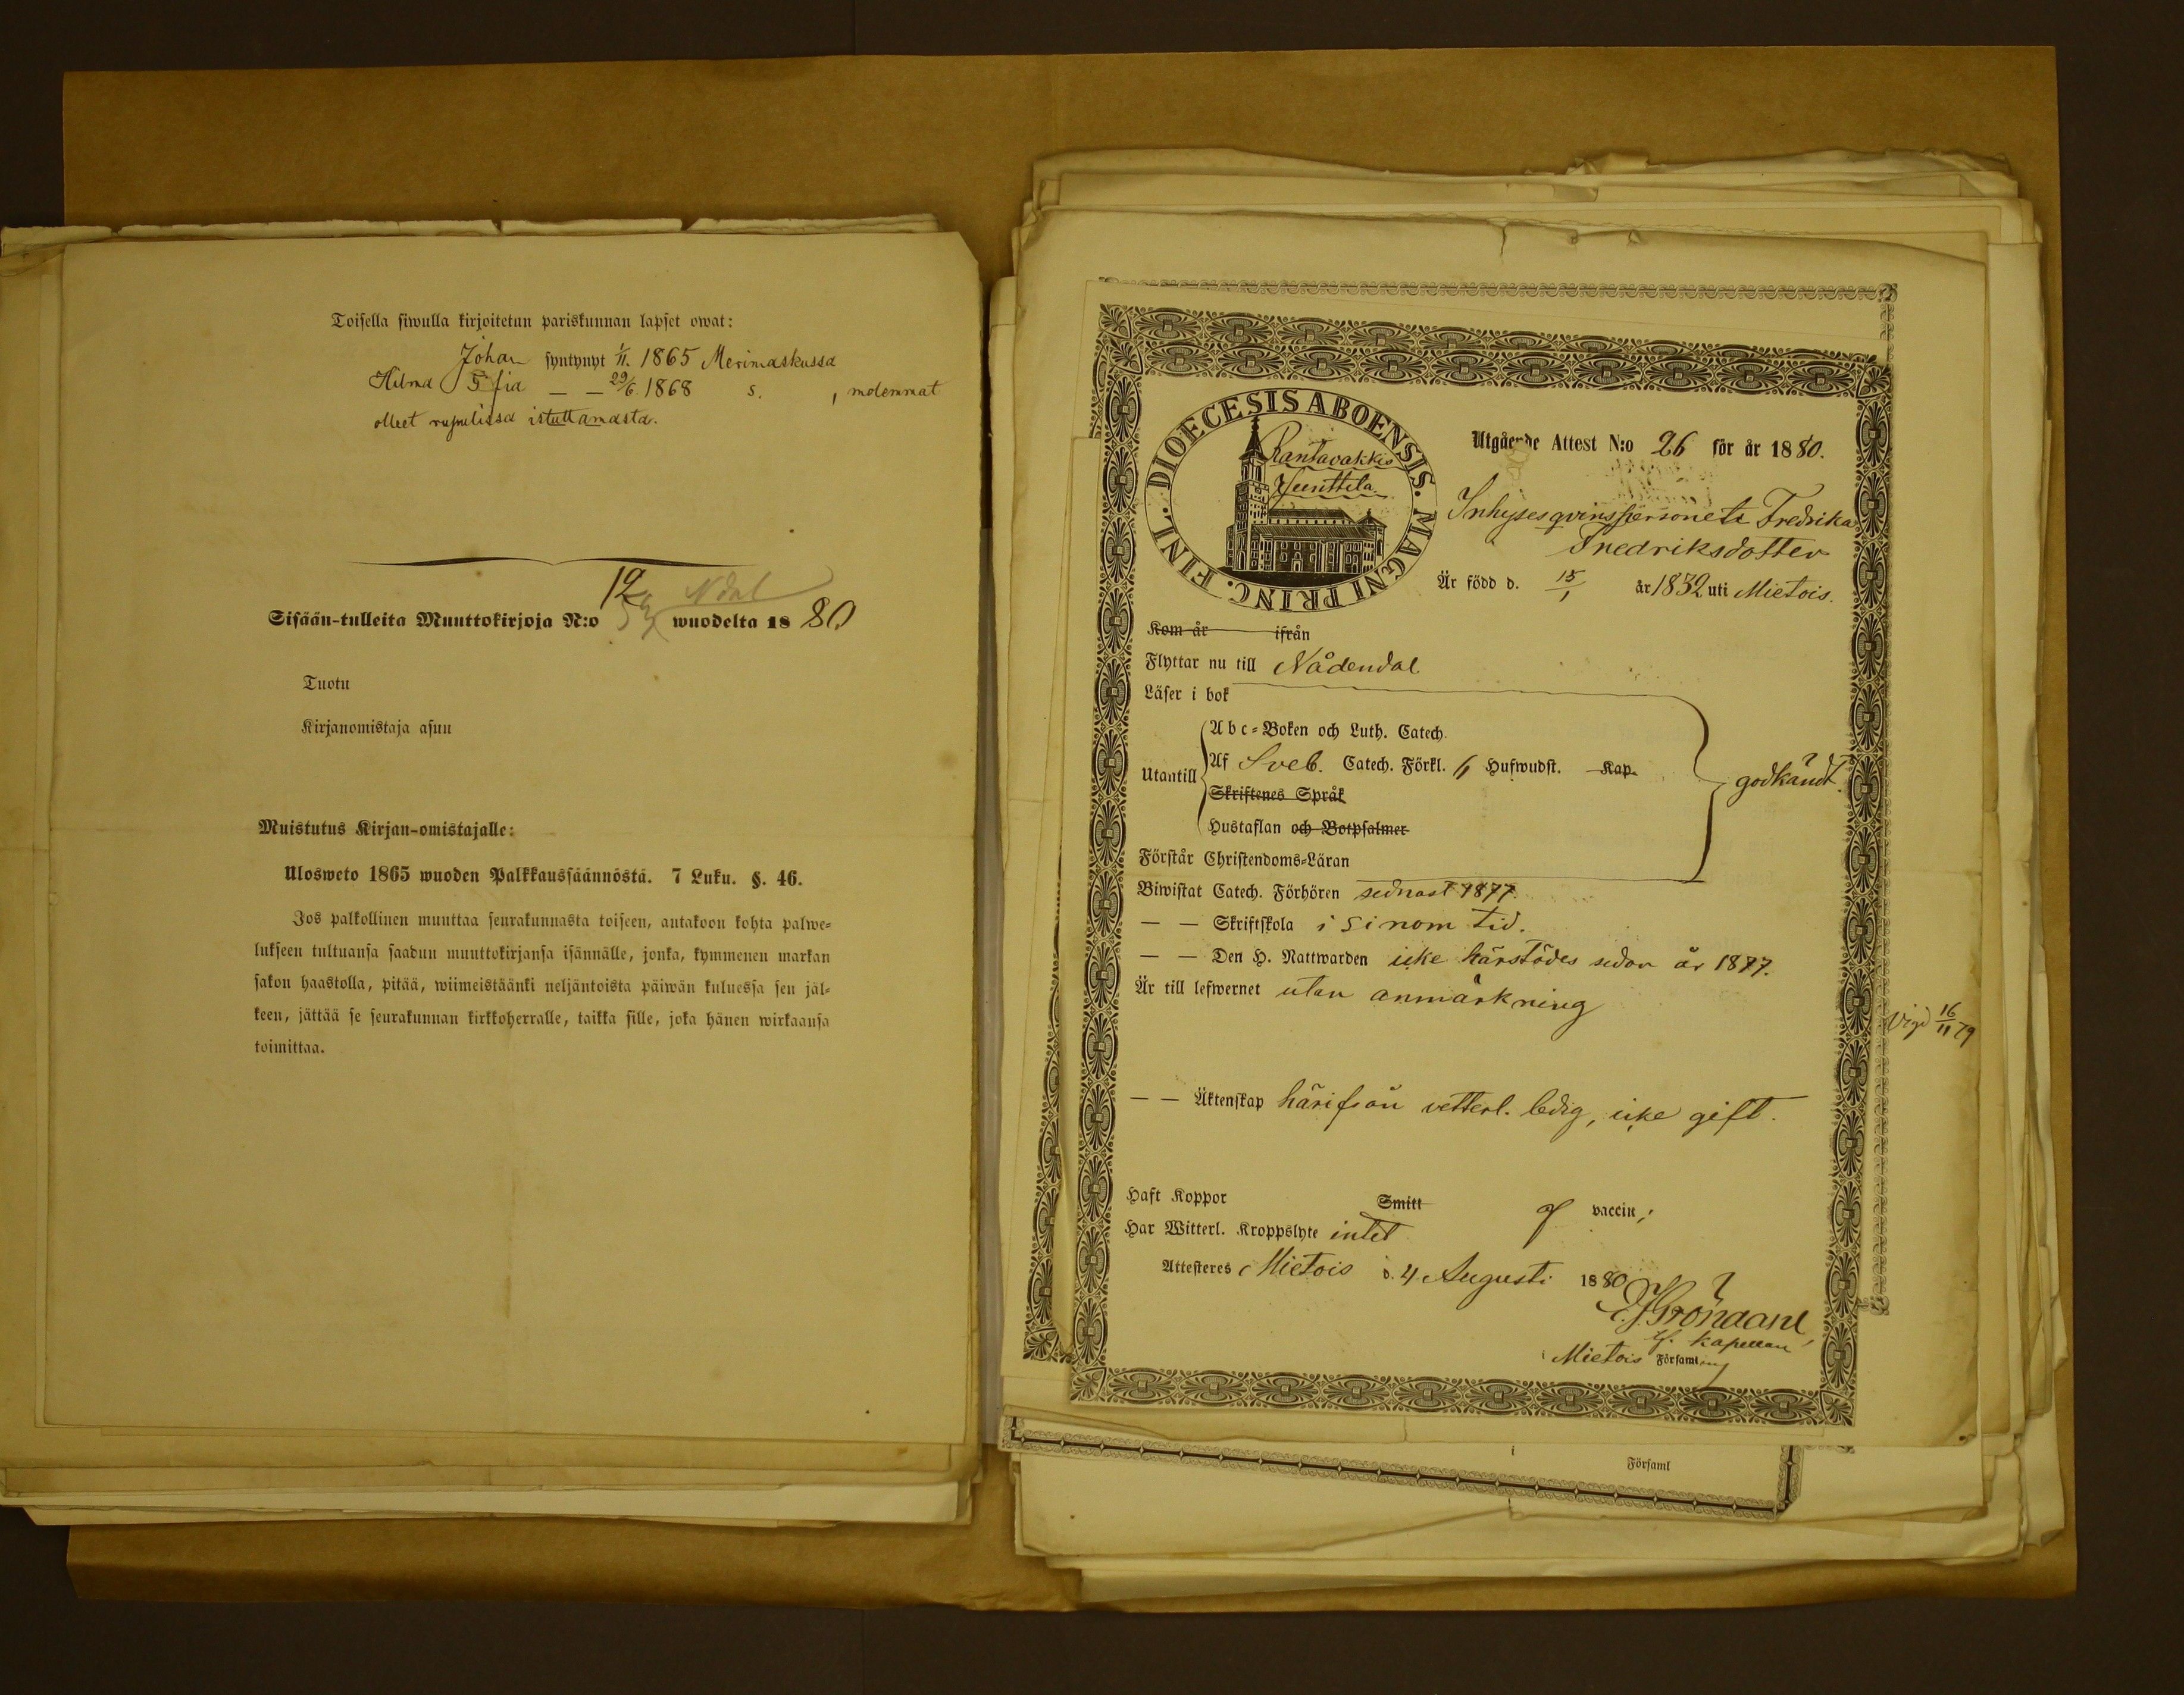 Toisella siwulla kirjoitetun pariskunnan lapset owat:
Johan syntynyt 1/11. 1865 Merimaskussa
Hilma Sofia — — 29/6. 1868 s. , molemmat
olleet rupulissa istuttamasta.
12 Ndal
Sisään-tulleita Muuttokirjoja N:o 53 wuodelta 1880
Tuotu
Kirjanomistaja asuu
Muistutus Kirjan-omistajalle:
Ulosweto 1865 wuoden Palkkaussäännöstä. 7 Luku. §. 46.
Jos palkollinen muuttaa seurakunnasta toiseen, antakoon kohta palwe-
lukseen tultuansa saadun muuttokirjansa isännälle, jonka, kymmenen markan
sakon haastolla, pitää, wiimeistäänki neljäntoista päiwän kuluessa sen jäl-
keen, jättää se seurakunnan kirkkoherralle, taikka sille, joka hänen wirkaansa
toimittaa.
DIOECESIS ABOENSIS. MAGNI PRINC. FINL.
Rantavakkis
Junttila
Utgående Attest N:o 26 för år 1880.
Inhysesqvinspersonen Fredrika
Fredriksdotter
Är född d. 15/1 år 1832 uti Mietois.
Kom år ifrån
Flyttar nu till Nådendal
Läser i bok
Utantill
Abc-Boken och Luth. Catech.
Af Sveb. Catech. Förkl. 6 Hufwudst. Kap.
Skriftenes Språk
Hustaflan och Botpsalmer
godkändt.
Förstår Christendoms-Läran
Biwistat Catech. Förhören sednast 1877.
— — Skriftskola i sinom tid.
— — Den H. Nattwarden icke härstädes sedan år 1877.
Är till lefwernet utan anmärkning
Vigd 16/11 79
— — Äktenskap härifrån vetterl. ledig, icke gift.
Haft Koppor Smitt af vaccin;
Har Witterl. Kroppslyte intet
Attesteres Mietois d. 4 Augusti 1880
kapellan
i Mietois Församling
Församl